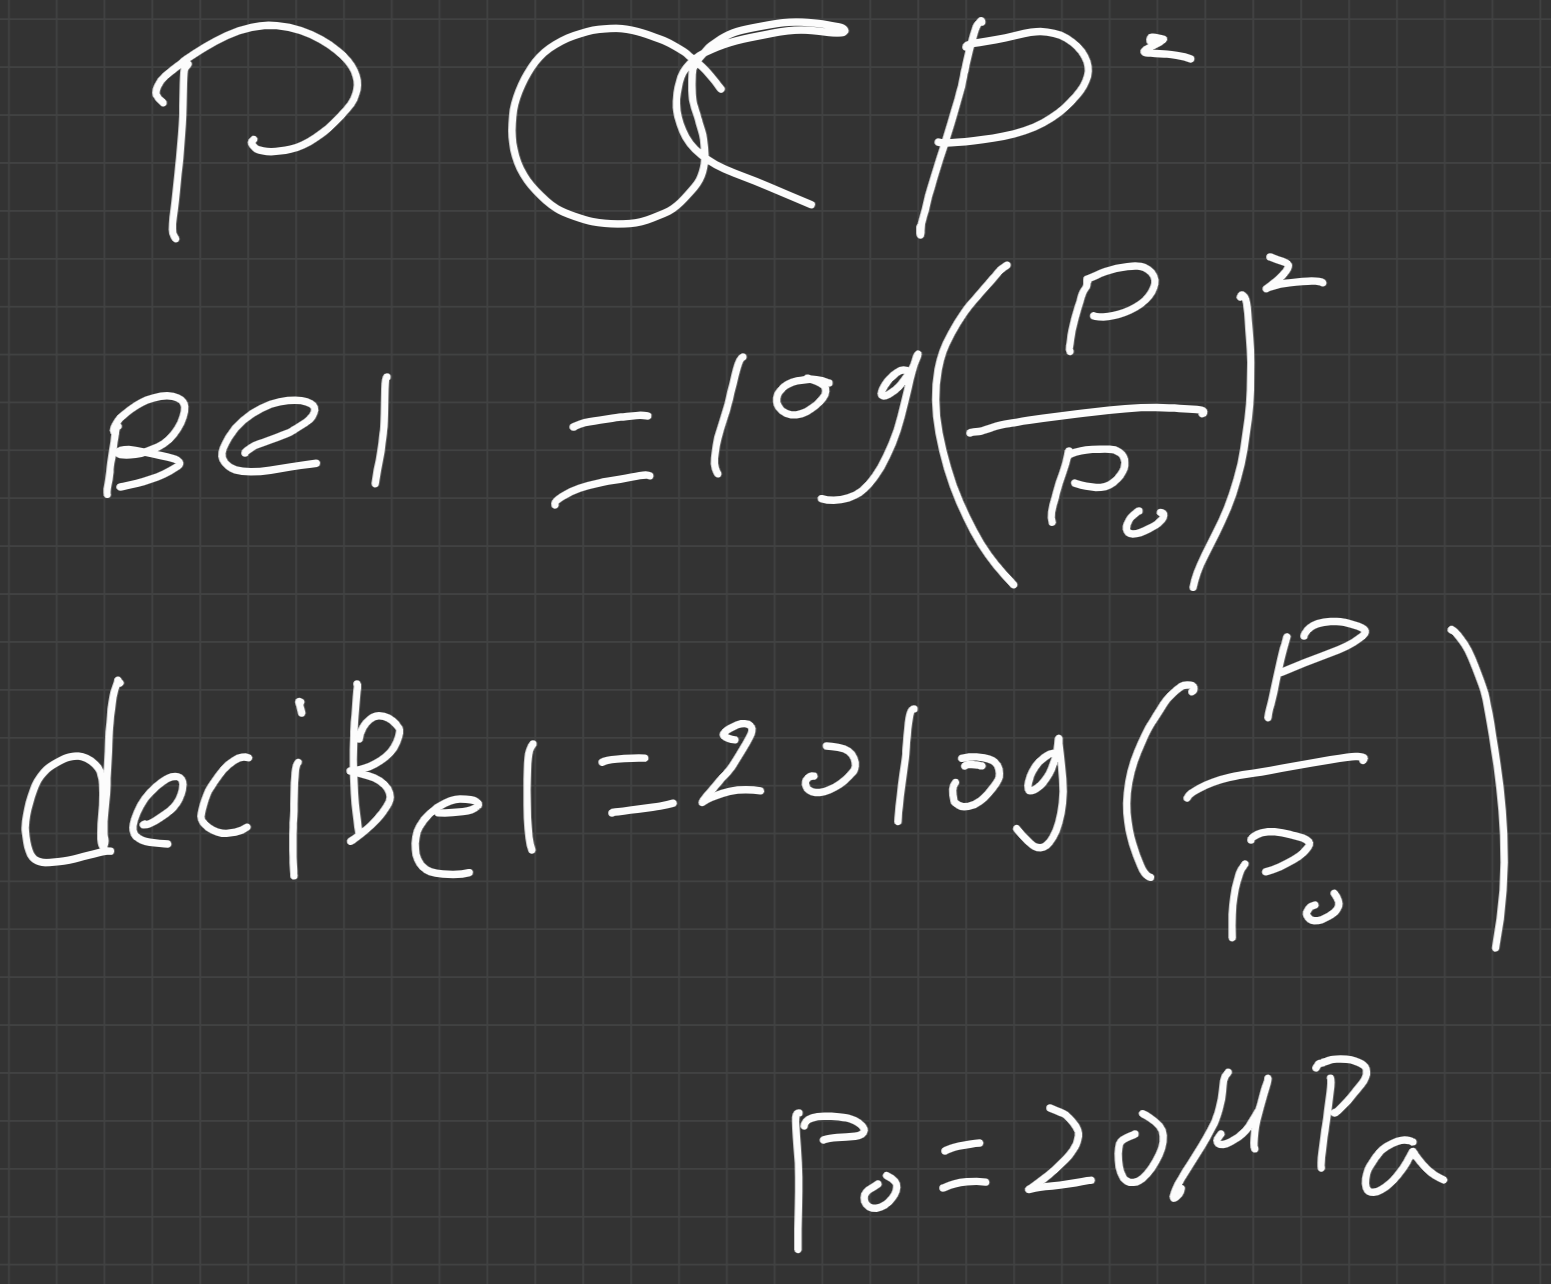 P ∝ p²
Bel = log(P/P₀)²
deciBel = 20 log(P/P₀)
P₀ = 20 μPa